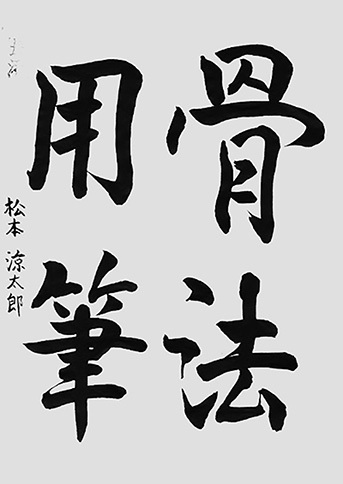 骨法
用筆
松本 涼太郎